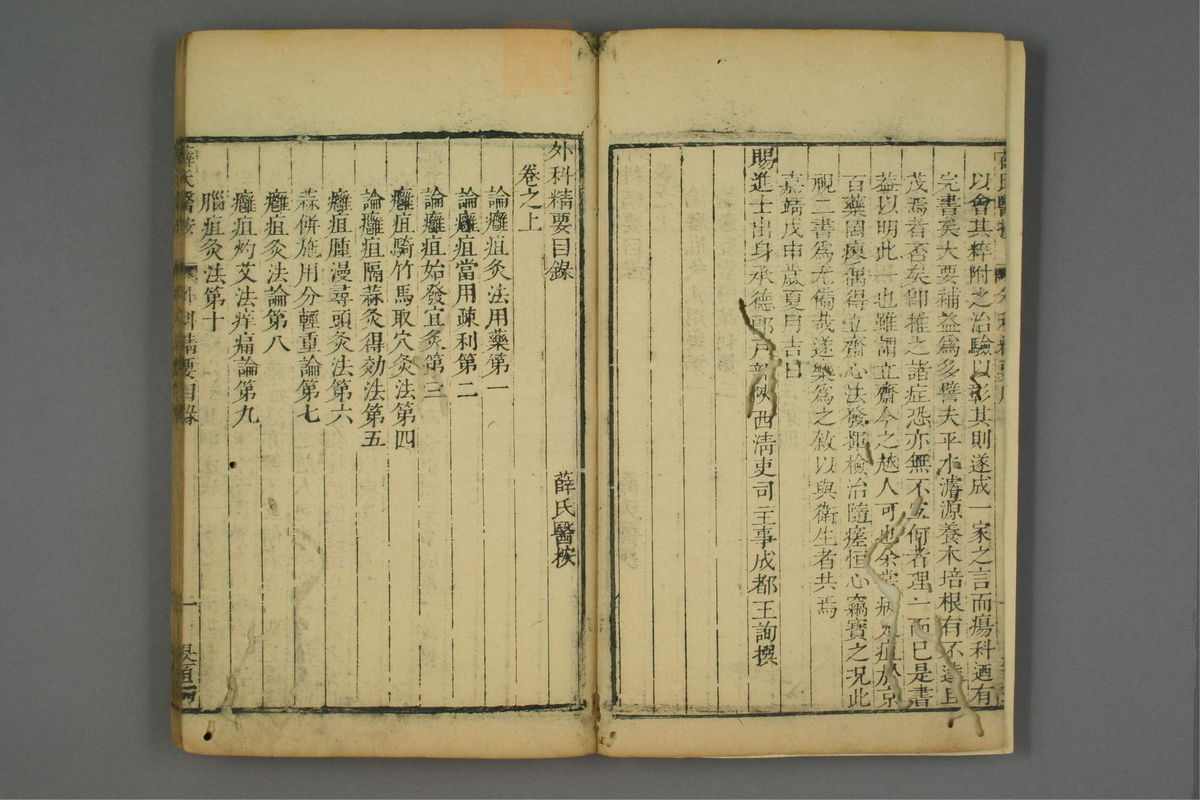 以會其粹附之治驗以彰其則遂成一家之言而瘍科迺有
完書矣大要補益爲多譬夫平水濬源養木培根有不達且
茂焉者否矣卽推之諸症恐亦無不宜何者理一而已是書
益以明此也雖謂立齋今之越人可也余嘗病疽於京
百藥罔瘳偶得立齋心法發揮檢治隨瘥恒心竊寶之况此
視二書爲尤備哉遂樂爲之敘以與衛生者共焉
嘉靖戊申歲夏月吉日
賜進士出身承德郎戶部陝西清吏司主事成都王詢撰
外科精要目錄 薛氏醫按
卷之上
論癰疽灸法用藥第一
論癰疽當用疎利第二
論癰疽始發宜灸第三
癰疽騎竹馬取穴灸法第四
論癰疽隔蒜灸得効法第五
癰疽腫漫尋頭灸法第六
蒜併施用分輕重論第七
癰疽灸法論第八
癰疽灼艾法痒痛論第九
腦疽灸法第十
薛氏醫按 外科精要目錄 一